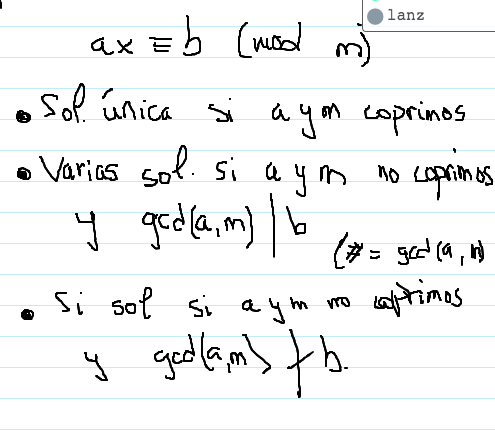 lanz
ax ≡ b (mod m)
• Sol. única si a y m coprimos
• Varias sol. si a y m no coprimos
y gcd(a,m) | b
(# = gcd(a, m)
• Si sol si a y m no coprimos
y gcd(a,m) ∤ b.